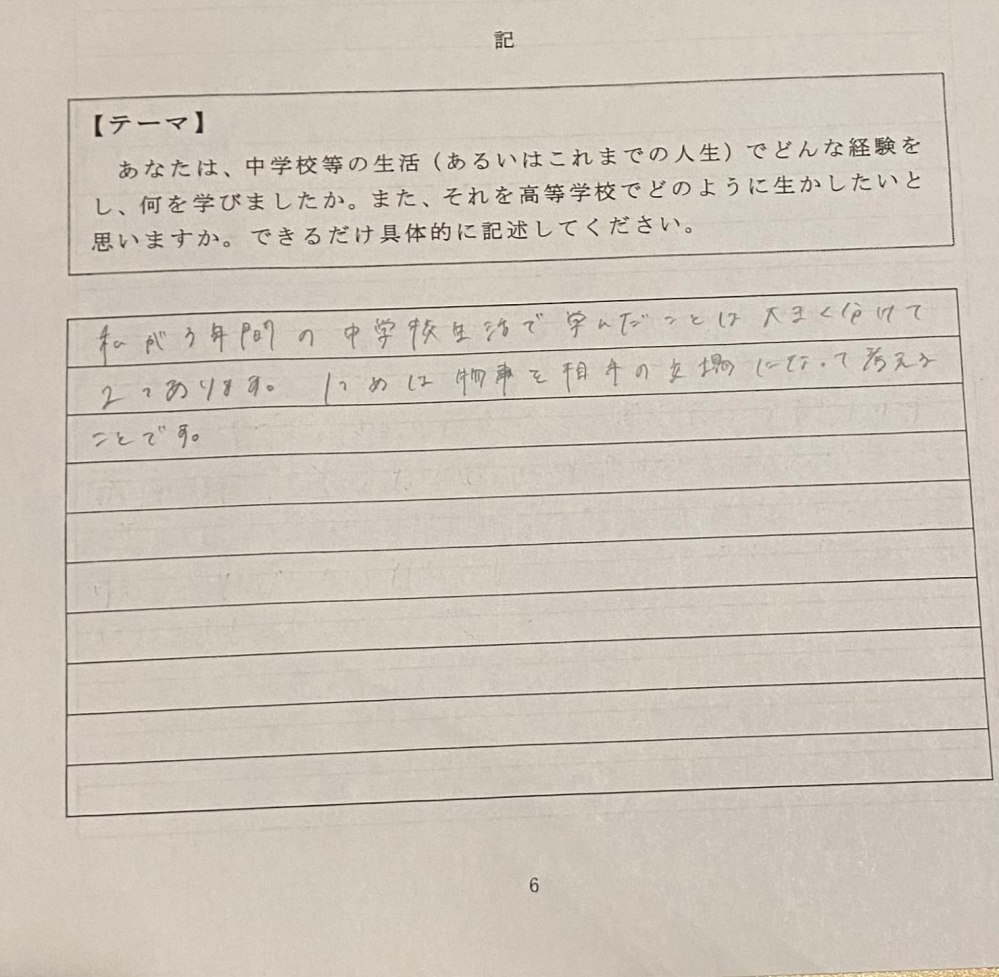 記
【テーマ】
あなたは、中学校等の生活（あるいはこれまでの人生）でどんな経験を
し、何を学びましたか。また、それを高等学校でどのように生かしたいと
思いますか。できるだけ具体的に記述してください。
私が3年間の中学校生活で学んだことは大きく分けて
2つあります。1つめは物事を相手の立場になって考える
ことです。
6